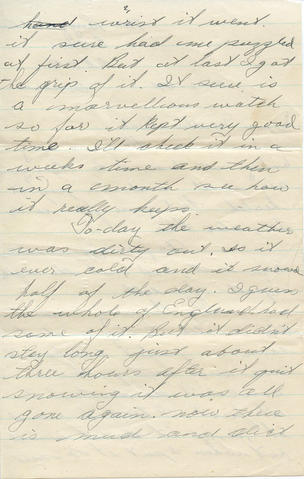 hand wrist it went.
it sure had me puzzled
at first. But at last I got
the grip of it. It sure is
a marvellious watch
so far it kept very good
time. I'll check it in a
weeks time and then
in a month see how
it really keeps.
To-day the weather
was dirty out. is it
ever cold and it snowed
half of the day. I guess
the whole of England had
some of it. But it didn't
stay long just about
three hours after it quit
snowing it was all
gone again. now there
is mud and